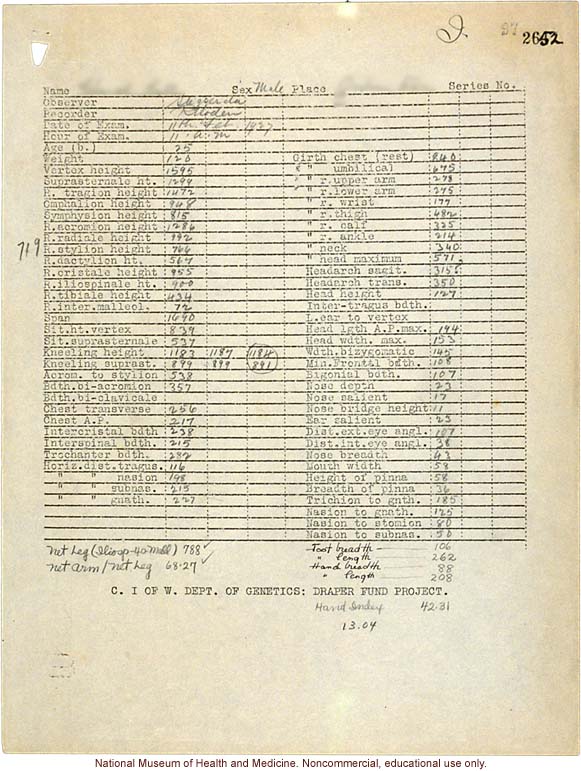 2652
Name Sex Male Place Series No.
Observer Steggerda
Recorder Rhoden
Date of Exam. 11th Feb 1927
Hour of Exam. 11 A.M
Age (b.) 25
Weight 120 Girth chest (rest) 840
Vertex height 1595 " " umbilical 675
Suprasternale ht. 1294 " r.upper arm 278
R. tragion height 1472 " r.lower arm 275
Omphalion height 948 " r. wrist 177
Symphysion height 815 " r.thigh 482
R.acromion height 1286 " r. calf 325
R.radiale height 992 " r. ankle 214
719 R.stylion height 746 " neck 340
R.dactylion ht. 567 " head maximum 571
R.cristale height 955 Headarch sagit. 315
R.iliospinale ht. 900 Headarch trans. 350
R.tibiale height 434 Head height 127
R.inter.malleol. 72 Inter-tragus bdth.
Span 1690 L.ear to vertex
Sit.ht.vertex 839 Head lgth A.P.max. 194
Sit.suprasternale 537 Head wdth. max. 153
Kneeling height 1183 1187 1184 Wdth.bizygomatic 145
Kneeling suprast. 899 899 891 Min.Frontl bdth. 108
Acrom. to stylion 538 Bigonial bdth. 107
Bdth.bi-acromion 357 Nose depth 23
Bdth.bi-clavicale Nose salient 17
Chest transverse 256 Nose bridge height 11
Chest A.P. 217 Ear salient 23
Intercristal bdth 238 Dist.ext.eye angl. 107
Interspinal bdth. 215 Dist.int.eye angl. 38
Trochanter bdth. 282 Nose breadth 43
Horiz.dist.tragus. 116 Mouth width 58
" " nasion 198 Height of pinna 58
" " subnas. 215 Breadth of pinna 36
" " gnath. 227 Trichion to gnth. 185
Nasion to gnath. 125
Nasion to stomion 80
Nasion to subnas. 50
Net Leg (Iliosp-40 Mall) 788 Foot breadth 106
Net arm/Net Leg 68.27 " length 262
Hand breadth 88
" length 208
C. I OF W. DEPT. OF GENETICS: DRAPER FUND PROJECT.
Hand Index 42.31
13.04
National Museum of Health and Medicine. Noncommercial, educational use only.